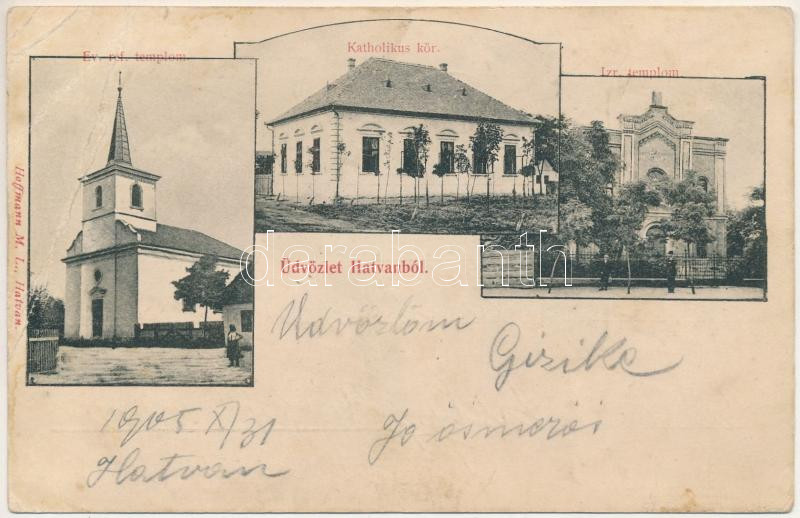 Ev. ref. templom
Katholikus kör.
Izr. templom
Hoffmann M. L., Hatvan.
Üdvözlet Hatvanból.
darabanth.com
Üdvözlöm
Gizike
1905 X/31
Hatvan
Jo ösmerös